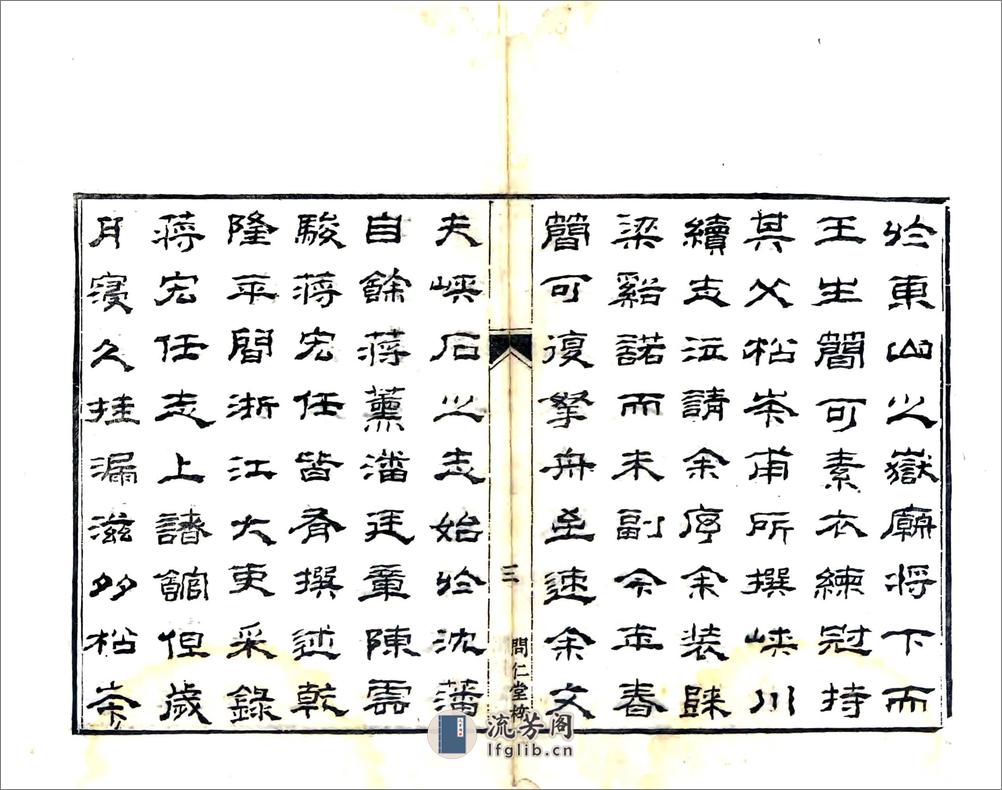 於東山之嶽廟將下而
王生簡可素衣練冠持
其父松岑甫所撰峽川
續志泣請余序余裝歸
梁谿諾而未副今年春
簡可復拏舟至速余文
三
問仁堂梅
夫峽石之志始於沈藩
自餘蔣薰潘廷章陳雲
駿蔣宏任皆有撰述乾
隆平間浙江大吏采錄
蔣宏任志上諸館但歲
月寖久挂漏滋多松岑
流芳阁
lfglib.cn